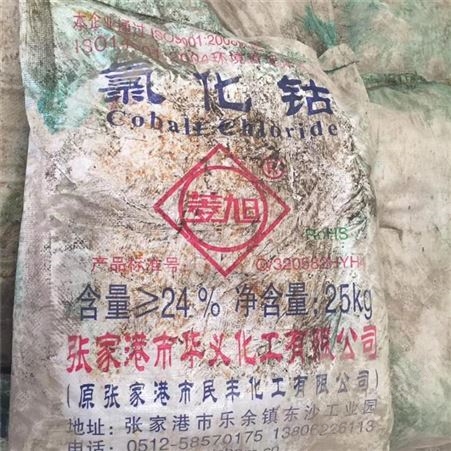 本企业通过ISO9001:2000
氯化钴
Cobalt Chloride
®
菱旭
RoHS
产品标准号:
Q/320582HYH
含量≥24% 净含量:25kg
张家港市华义化工有限公司
(原张家港市民丰化工有限公司)
地址:张家港市乐余镇东沙工业园
电话:0512-58570175 13806226113